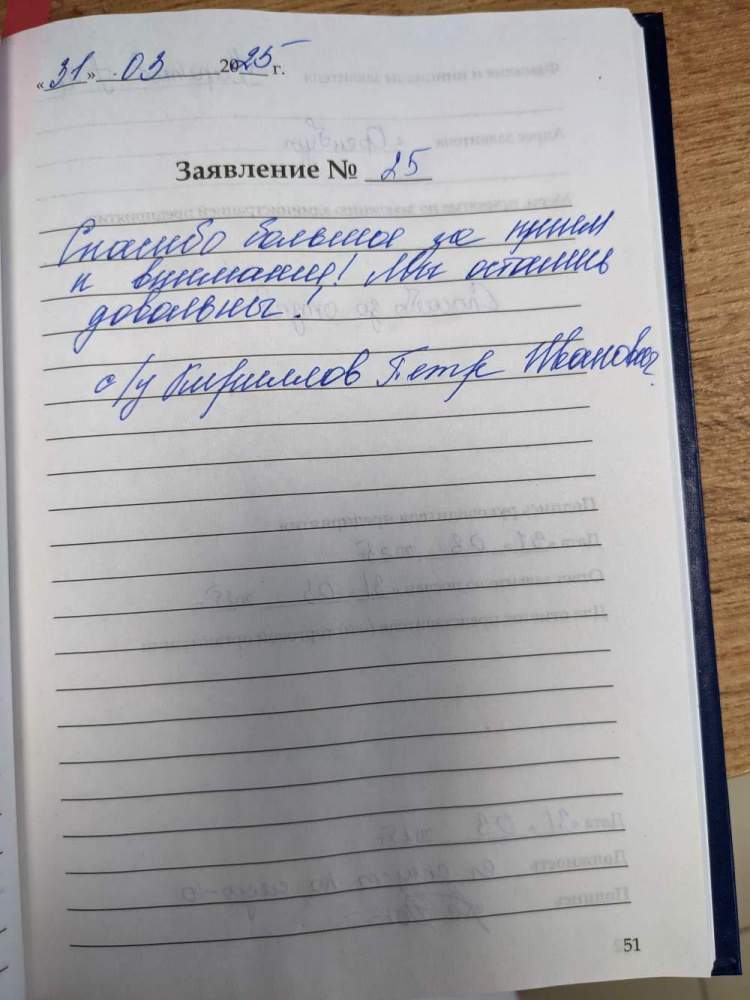 «31» 03 2025 г.
Заявление № 25
Спасибо большое за прием
и внимание! Мы остались
довольны!
с/у Кириллов Петр Иванович
51